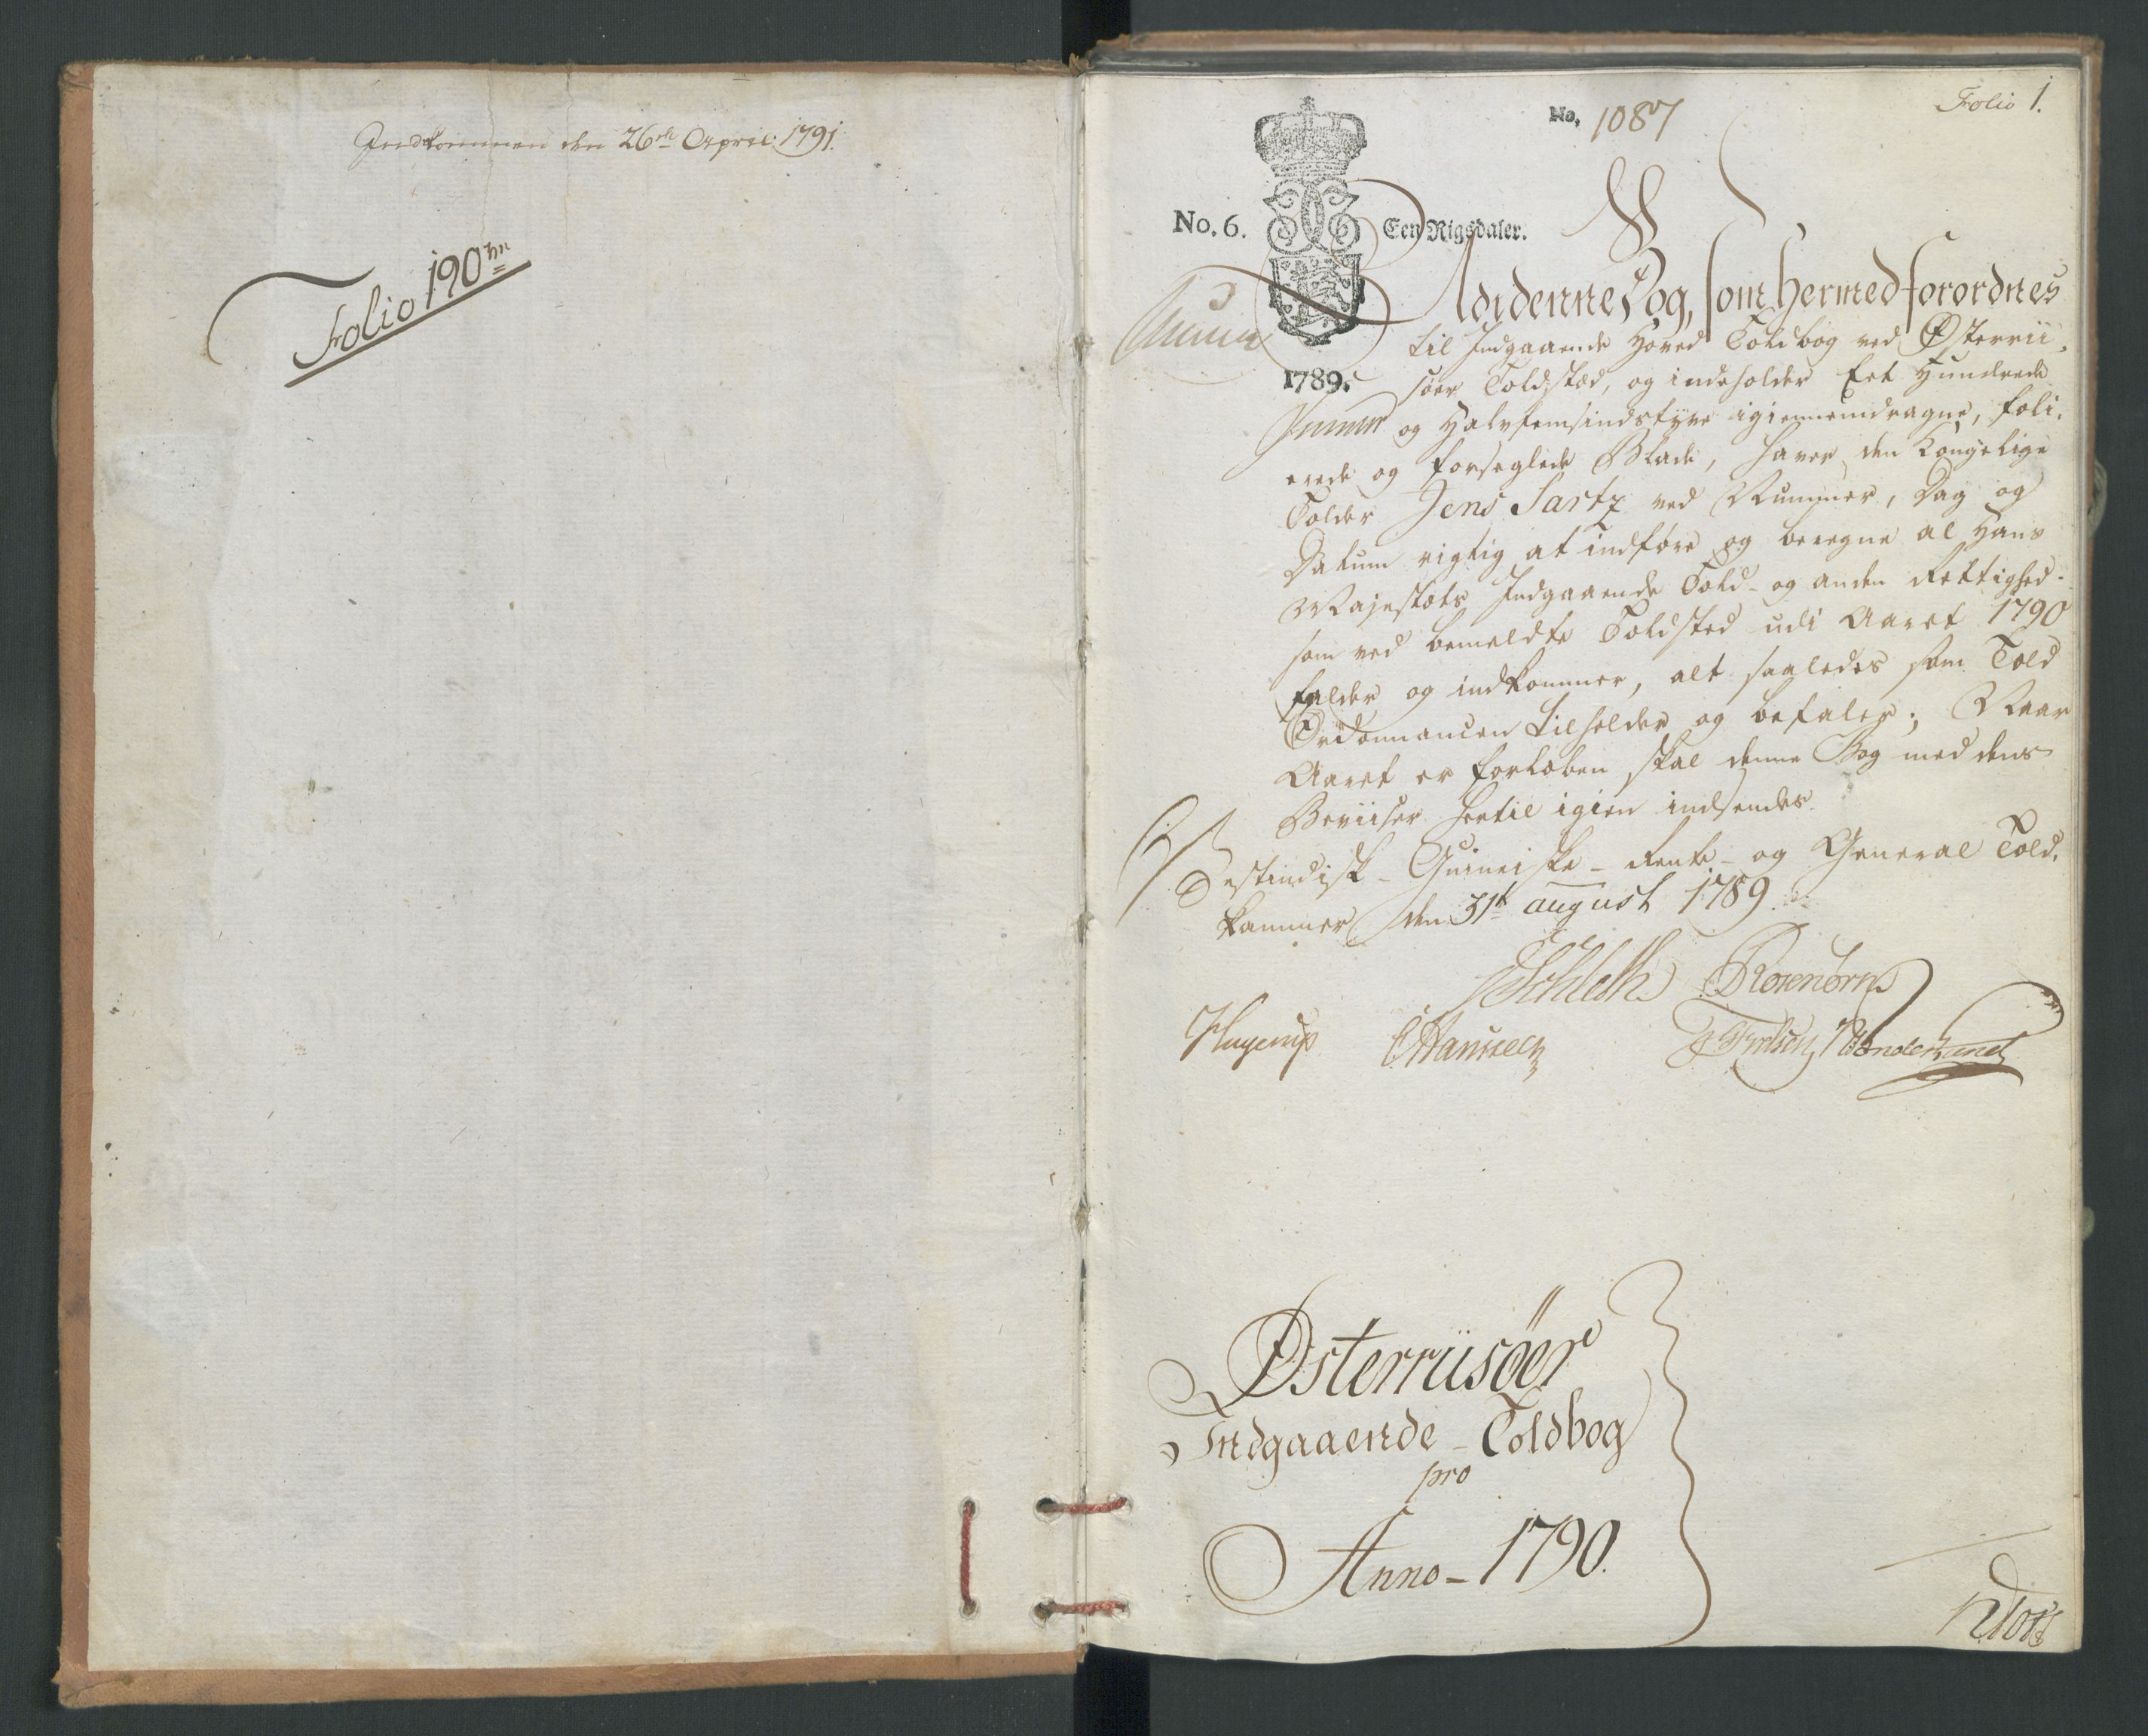 Indkommen den 26de April 1791.
Folio 190ve
Folio 1.
No. 1087
No. 6.
Een Rigsdaler.
1789.
Udi denne Bog, som hermed forordnes
til Indgaaende Hoved Toldbog ved Østerrii-
søer Toldsted, og indeholder Eet Hundrede
og Halvfemsindstyve igiennemdragne, foli-
erede og forseglede Blade, haver den Kongelige
Tolder Jens Sartz ved Nummer, Dag og
Datum rigtig at indføre og beregne al Hans
Majestæts Indgaaende Told- og anden Rettighed
som ved bemeldte Toldsted udi Aaret 1790
falder og indkommer, alt saaledes som Told
Ordonnancen tilholder og befaler; Naar
Aaret er forløben skal denne Bog med dens
Beviiser hertil igien indsendes.
Vestindisk- Guineiske- Rente- og General Told-
kammer den 31t august 1789.
Schleth Rosenørn
CHansen
Østerriisøer
Indgaaende- Toldbog
pro
Anno- 1790.